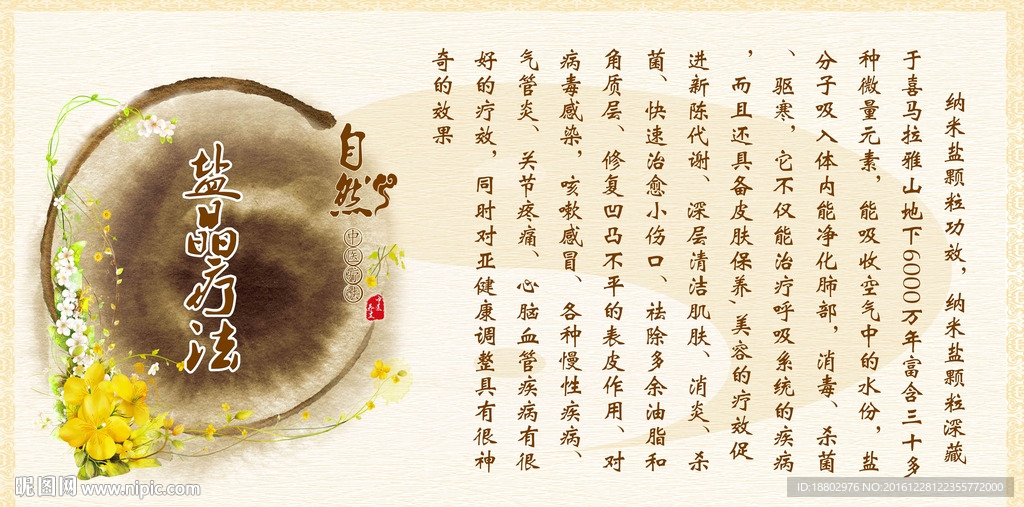 盐晶疗法
自然
中医疗法
纳米盐颗粒功效，纳米盐颗粒深藏
于喜马拉雅山地下6000万年富含三十多
种微量元素，能吸收空气中的水份，盐
分子吸入体内能净化肺部，消毒、杀菌
、驱寒，它不仅能治疗呼吸系统的疾病
，而且还具备皮肤保养，美容的疗效促
进新陈代谢、深层清洁肌肤、消炎、杀
菌、快速治愈小伤口、祛除多余油脂和
角质层、修复凹凸不平的表皮作用、对
病毒感染，咳嗽感冒、各种慢性疾病、
气管炎、关节疼痛、心脑血管疾病有很
好的疗效，同时对亚健康调整具有很神
奇的效果
昵图网 www.nipic.com
ID:18802976 NO:20161228122355772000